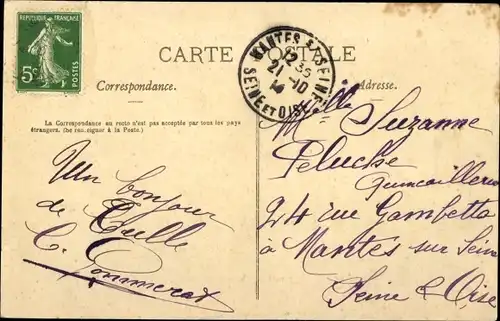 REPUBLIQUE FRANÇAISE
5c POSTES
CARTE POSTALE
MANTES S/SEINE
12 35
21 -10
SEINE ET OISE
Correspondance.
Adresse.
La Correspondance au recto n'est pas acceptée par tous les pays
étrangers. (Se renseigner à la Poste.)
Un bonjour
de Tulle
C. Pommerat
Melle Suzanne
Peluche
Quincaillerie
24 rue Gambetta
à Mantes sur Seine
Seine & Oise